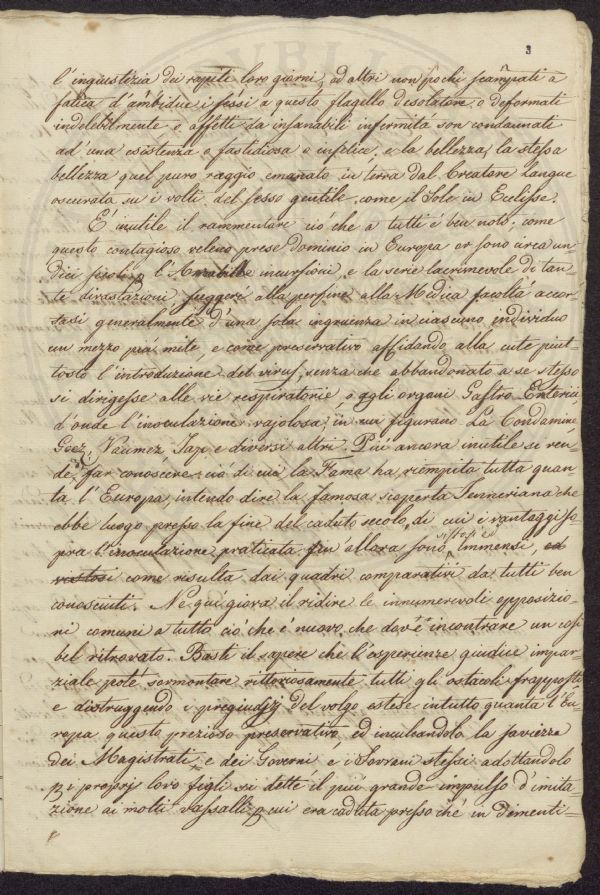 3
l'ingiustizia dei rapiti loro giorni, ed altri non pochi scampati a
fatica d'ambidue i sessi a questo flagello desolatore o deformati
indelebilmente o affetti da insanabili infermitá son condannati
ad una esistenza o fastidiosa o infelice, e la bellezza, la stessa
bellezza quel puro raggio emanato in terra dal Creatore langue
oscurata su i volti del sesso gentile, come il Sole in Eclisse.
É inutile il rammentare ció che a tutti é ben noto, come
questo contagioso veleno prese dominio in Europa or sono circa un
dici secoli, l'Arabiche incursioni, e la serie lacrimevole di tan=
te divastazioni suggerí alla perfine alla Medica facoltá accor=
tasi generalmente d'una sola ingruenza in ciascuno individuo
un mezzo piú mite, e come preservativo affidando alla cute piut=
tosto l'introduzione del virus, senza che abbandonato a se stesso
si dirigesse alle vie respiratorie o agli organi Gastro Enterici,
d'onde l'inoculazione vajolosa, in cui figurano La Condamine
Goez, e diversi altri. Piú ancora inutile si ren=
de far conoscere ció di cui la Fama ha riempita tutta quan
ta l'Europa, intendo dire la famosa scoperta Jenneriana che
ebbe luogo presso la fine del caduto secolo, di cui i vantaggi so
pra l'inoculazione praticata fin' allora sono immensi, ed
vistosi come risulta dai quadri comparativi da tutti ben
conosciuti. Ne quí giova il ridire le innumerevoli opposizio=
ni comuni a tutto ció che é nuovo, che dové incontrare un cosí
bel ritrovato. Basti il sapere che l'esperienza giudice impar=
ziale poté sormontare vittoriosamente tutti gli ostacoli frapposti
e distruggendo i pregiudizj del volgo estese in tutto quanta l'Eu
ropa questo prezioso preservativo, ed inculcandolo la saviezza
dei Magistrati, e dei Governi e i Sovrani stessi adottandolo
i proprj loro figli si dette il piú grande impulso d'imita=
zione ai molti vassalli, cui era caduta presso ché in dimenti=